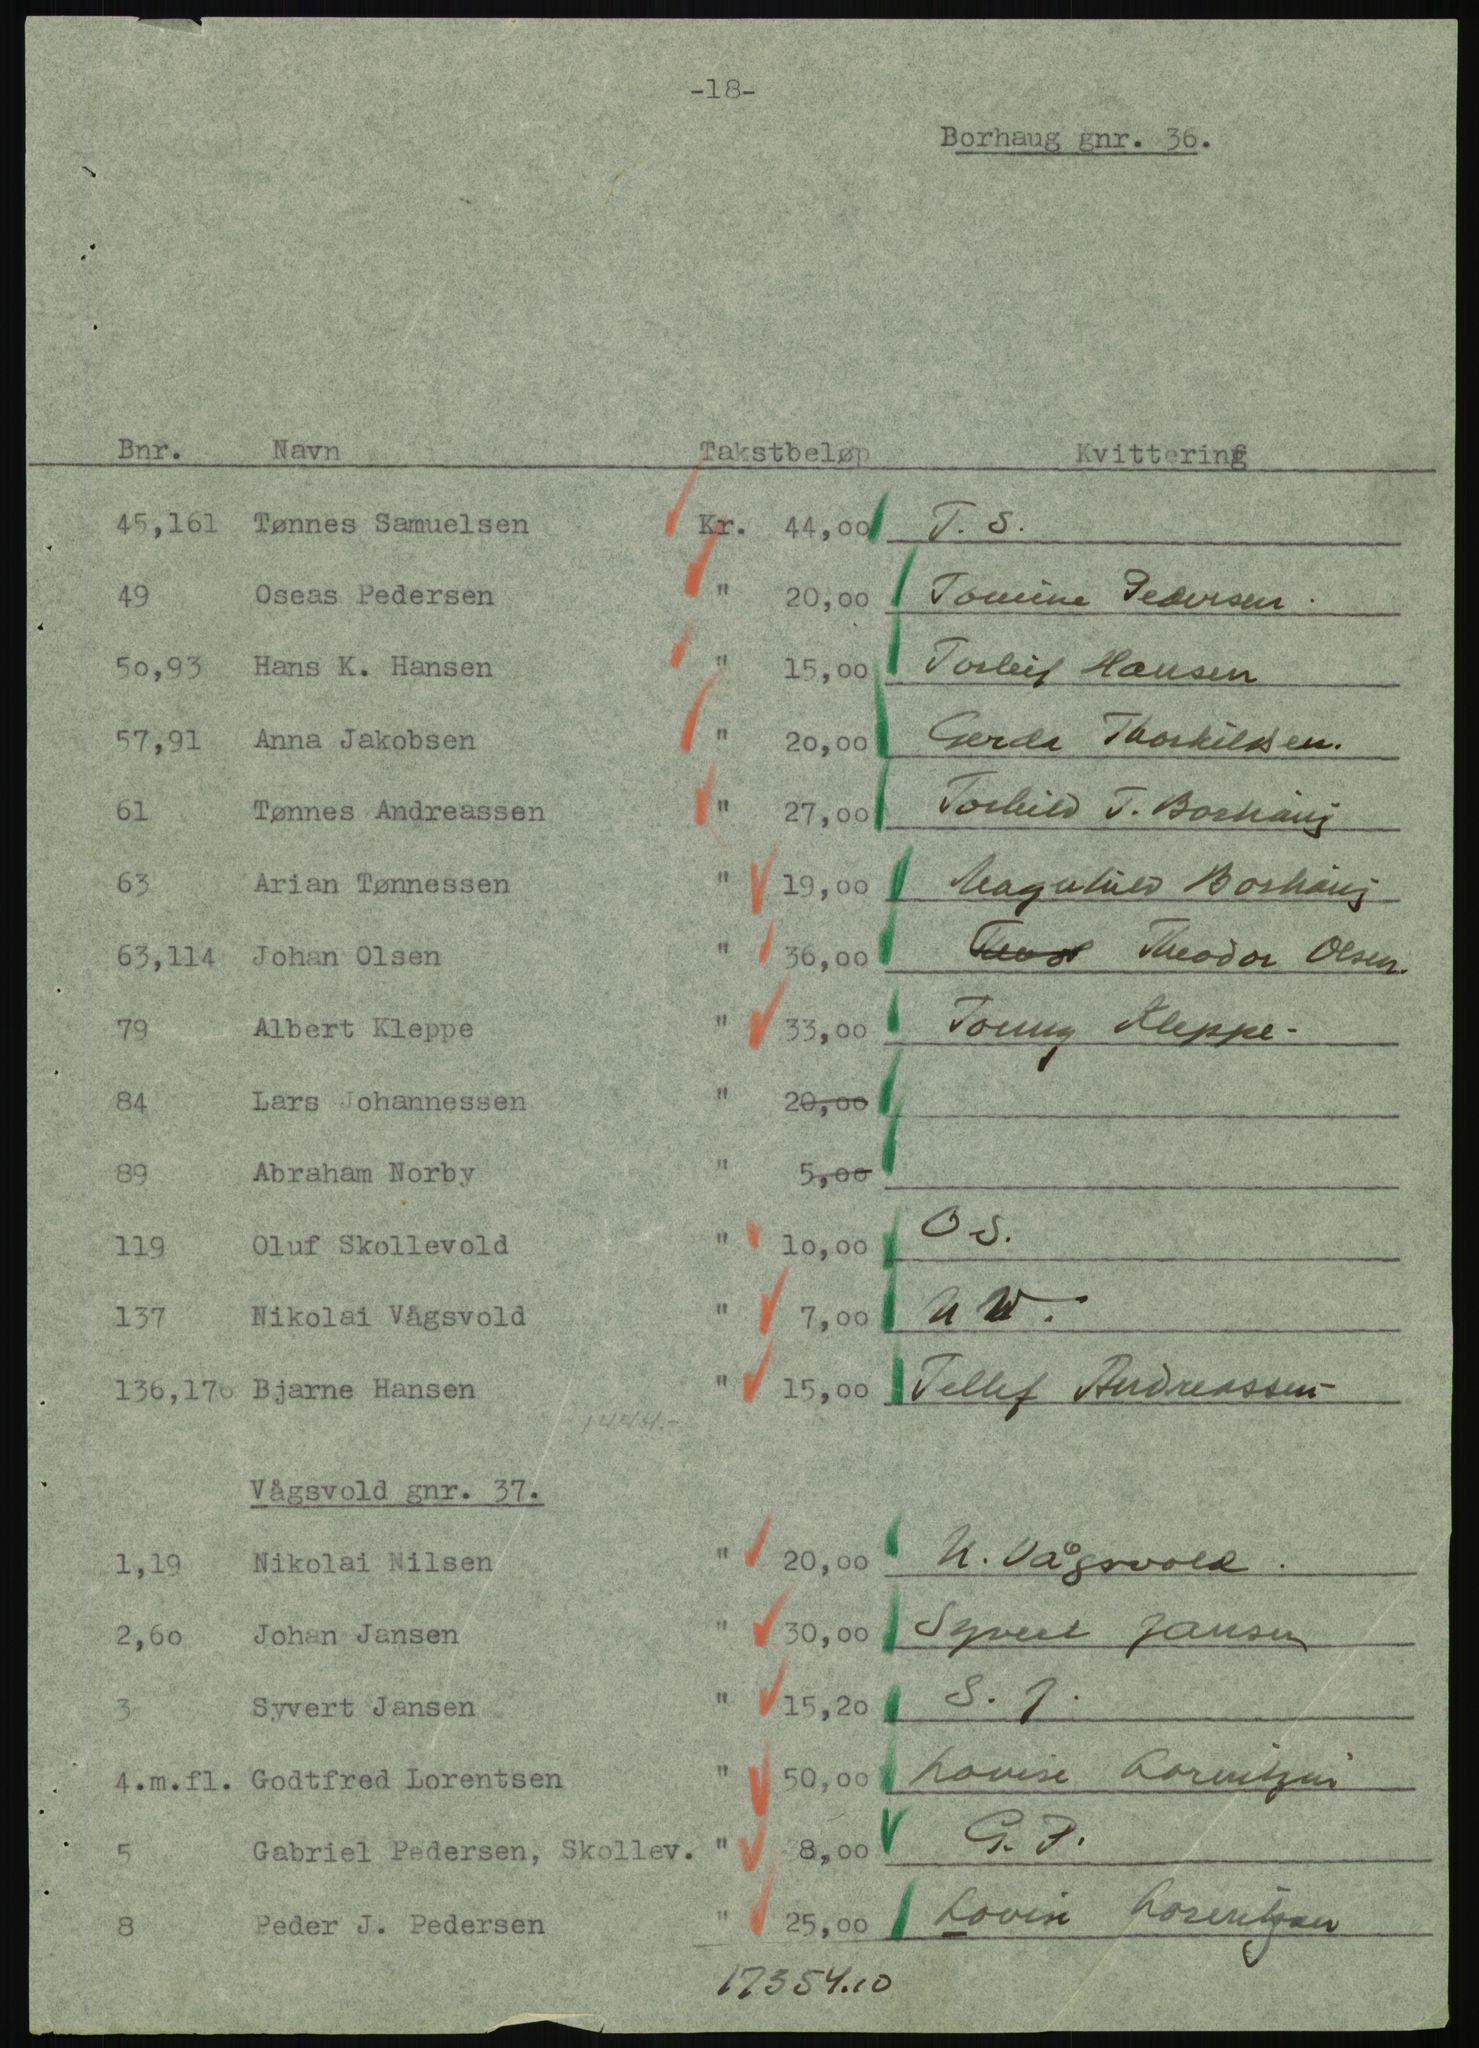 -18-
Borhaug gnr. 36.
Bnr. Navn Takstbeløp Kvittering
45,161 Tønnes Samuelsen Kr. 44,00 T. S.
49 Oseas Pedersen " 20,00 Tomine Pedersen.
50,93 Hans K. Hansen " 15,00 Torleif Hansen
57,91 Anna Jakobsen " 20,00 Gerda Thorkildsen.
61 Tønnes Andreassen " 27,00 T. Borhaug
63 Arian Tønnessen " 19,00 Magnhild Borhaug
63,114 Johan Olsen " 36,00 Theodor Olsen.
79 Albert Kleppe " 33,00 Tonny Kleppe-
84 Lars Johannessen " 20,00
89 Abraham Norby " 5,00
119 Oluf Skollevold " 10,00 O S.
137 Nikolai Vågsvold " 7,00 N W.
136,176 Bjarne Hansen " 15,00 Tellef Andreassen
1444.-
Vågsvold gnr. 37.
1,19 Nikolai Nilsen " 20,00 N. Vågsvold.
2,60 Johan Jansen " 30,00 Syvert Jansen
3 Syvert Jansen " 15,20 S. J.
4.m.fl. Godtfred Lorentsen " 50,00 Lovise Lorentzen
5 Gabriel Pedersen, Skollev. " 8,00 G. P.
8 Peder J. Pedersen " 25,00 Lovise Lorentzen
17354.10